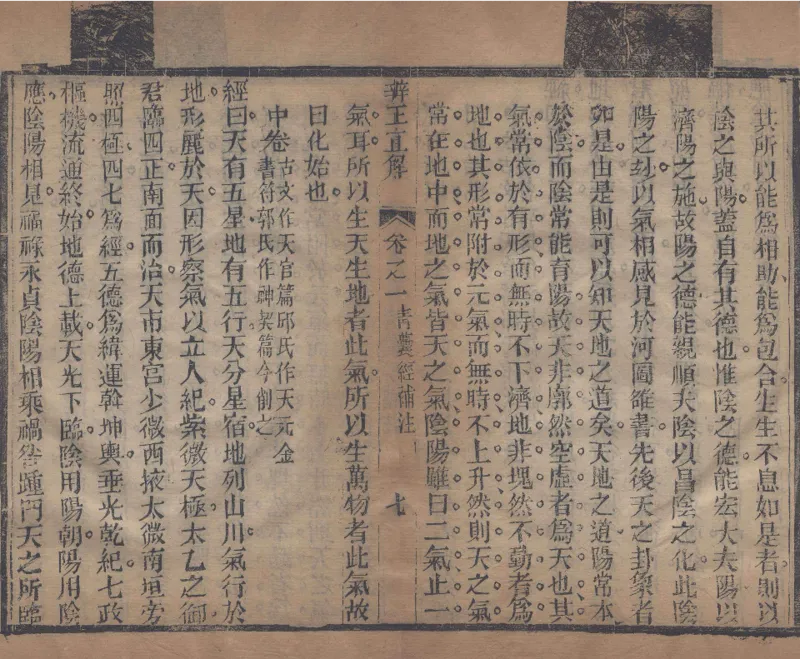 其所以能爲相助能爲包含生生不息如是者則以
陰之與陽蓋自有其德也惟陰之德能宏大夫陽以
濟陽之施故陽之德能親順夫陰以昌陰之化此陰
陽之玅以氣相感見於河圖雒書先後天之卦象者
如是由是則可以知天地之道矣天地之道陽常本
於陰而陰常能育陽故天非廓然空虛者爲天也其
氣常依於有形而無時不下濟地非塊然不動者爲
地也其形常附於元氣而無時不上升然則天之氣
常在地中而地之氣皆天之氣陰陽雖曰二氣止一
辨正直解
卷之一
青囊經補注
七
氣耳所以生天生地者此氣所以生萬物者此氣故
曰化始也
中卷
古文作天官篇邱氏作天元金
書符郭氏作神契篇今削之
經曰天有五星地有五行天分星宿地列山川氣行於
地形麗於天因形察氣以立人紀紫微天極太乙之御
君臨四正南面而治天市東宮少微西掖太微南垣旁
照四極四七爲經五德爲緯運斡坤輿垂光乾紀七政
樞機流通終始地德上載天光下臨陰用陽朝陽用陰
應陰陽相見福祿永貞陰陽相乘禍咎踵門天之所臨